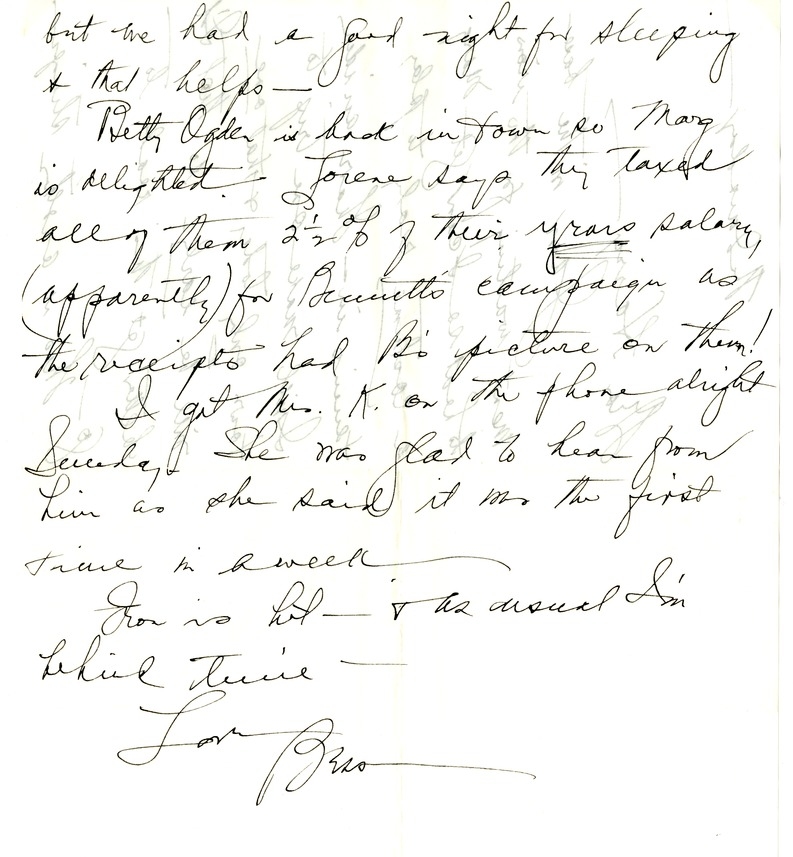 but we had a good night for sleeping
& that helps—
Betty Ogden is back in town so Marg
is delighted. Lorene says they taxed
all of them 2½% of their years salary,
(apparently) for Bennett's campaign as
the receipts had B's picture on them!
I got Mrs. K. on the phone alright
Sunday. She was glad to hear from
him as she said it was the first
time in a week—
Iron is hot— & as usual I'm
behind time—
Love
Bess